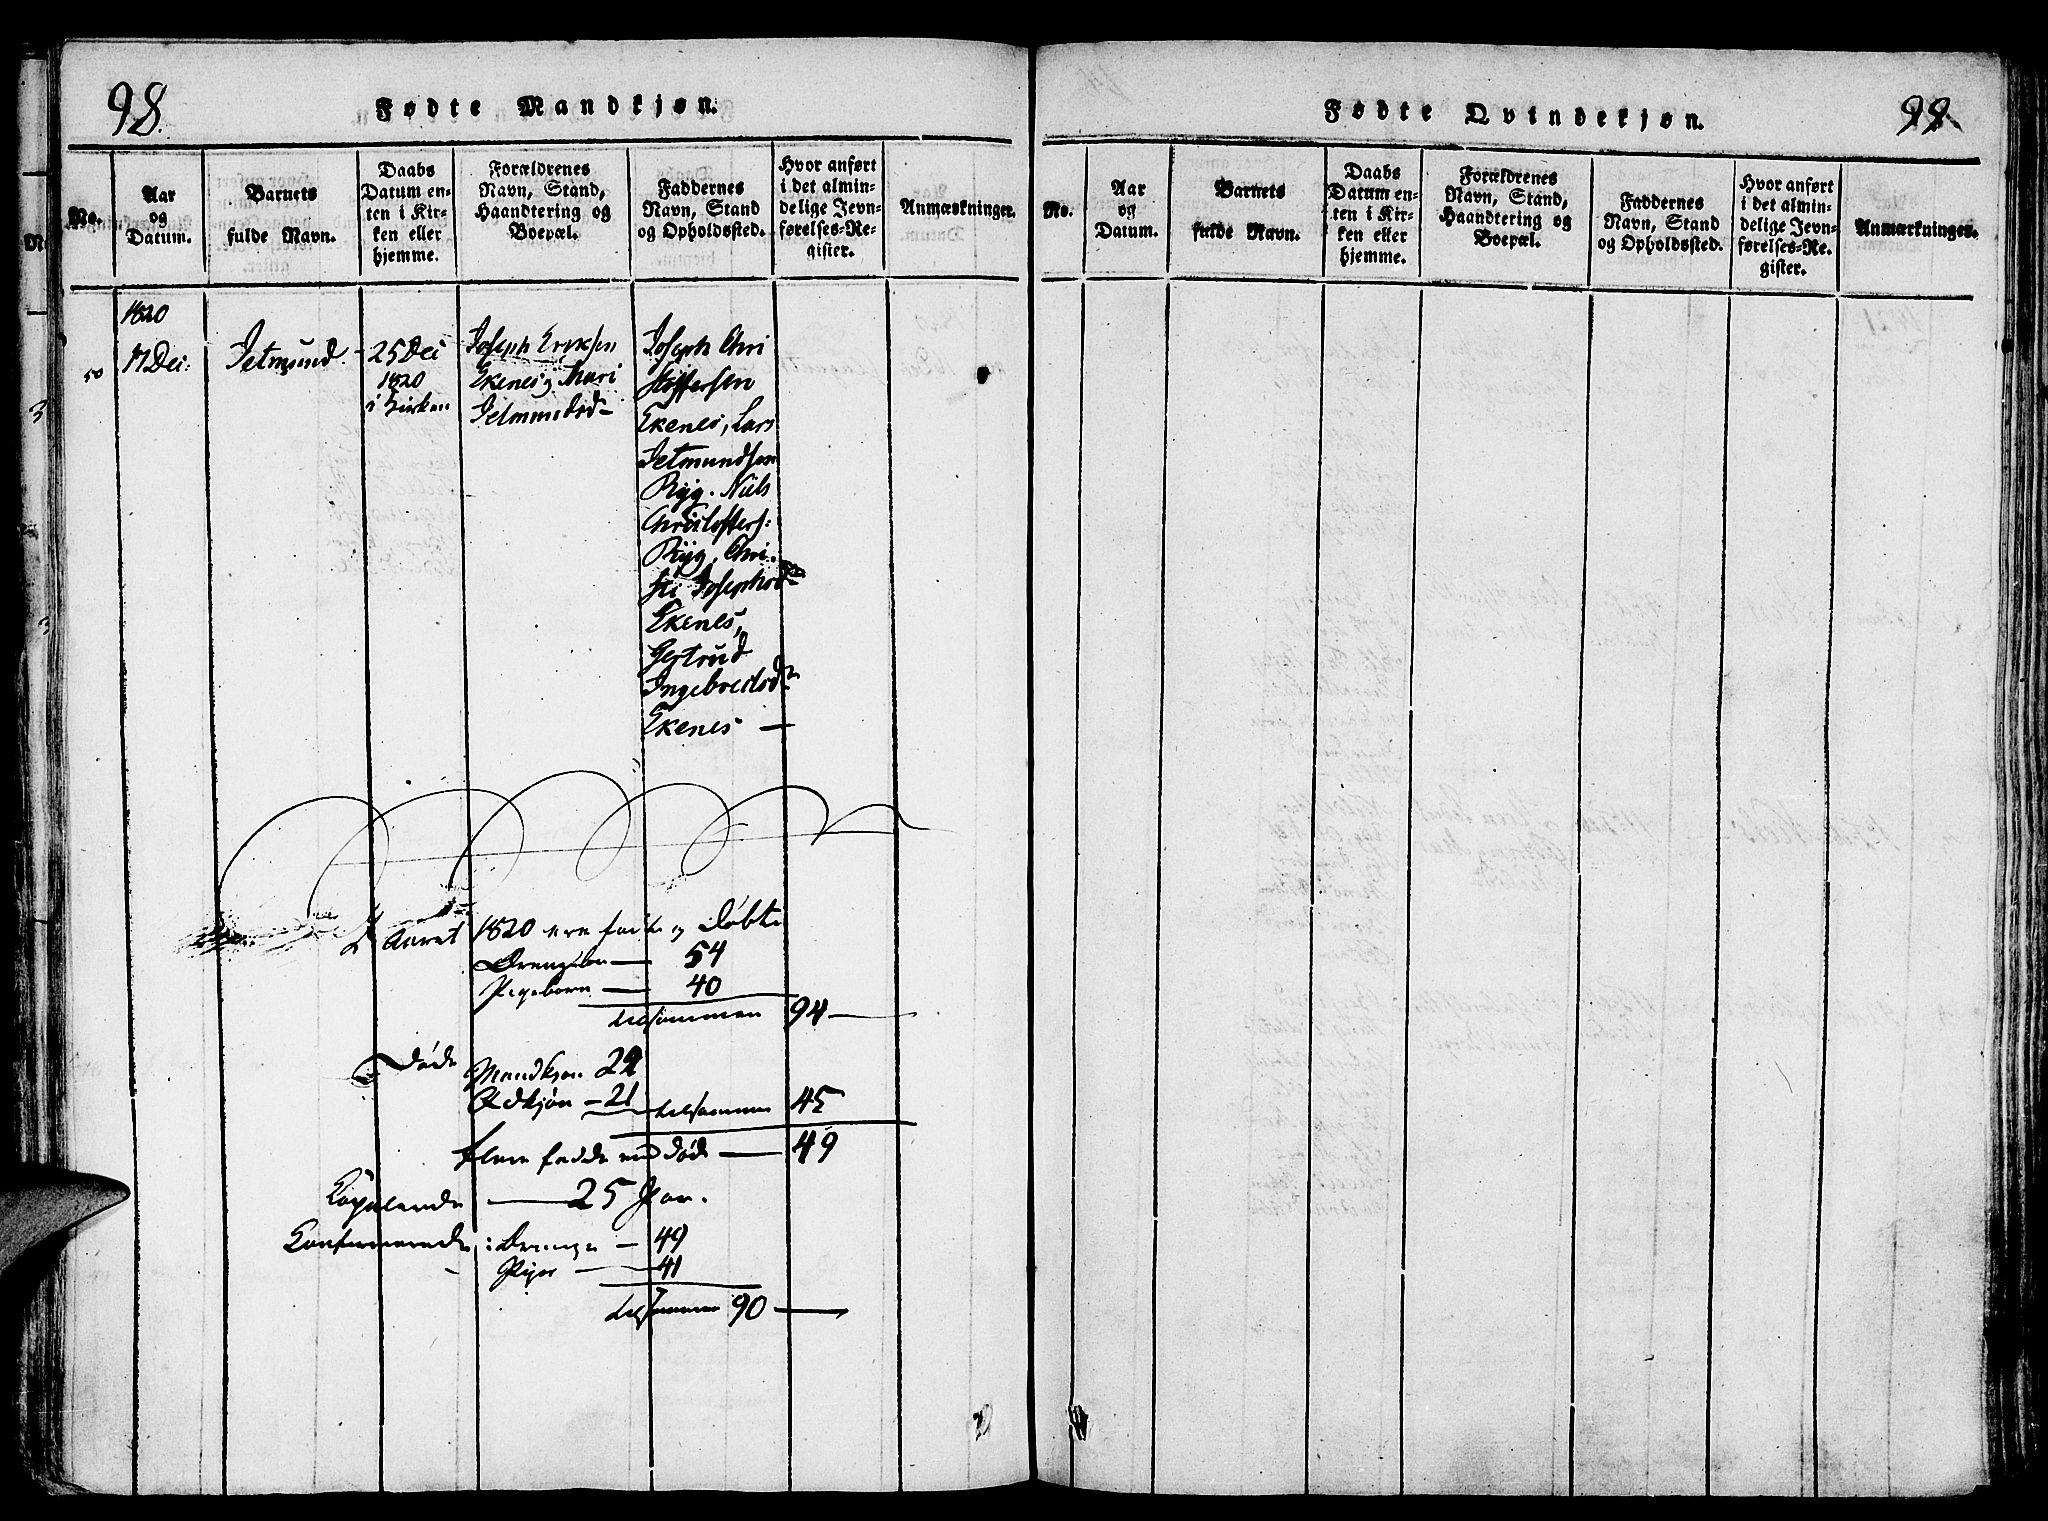 98.
Fødte Mandkjøn.
No.
Aar
og
Datum.
Barnets
fulde Navn.
Daabs
Datum en-
ten i Kir-
ken eller
hjemme.
Forældrenes
Navn, Stand,
Haandtering og
Boepæl.
Faddernes
Navn, Stand
og Opholdssted.
Hvor anført
i det almin-
delige Jevn-
førelses-Re-
gister.
Anmærkninger.
1820
17 Dec:
Jetmund
25 Dec
1820
i Kirken
Joseph
Ekenes, Mari
Joseph Chri
stoffersen
Ekenes, Lars
Jetmundsen
Ryg. Niels
Christoffers:
Ryg, Chri-
sti Josephsd
Ekenes,
Gertrud
Ekenes —
Aaret 1820 ere fødte og Døbte
Drengebørn — 54
Pigebørn — 40
tilsammen 94 —
Døde
Mandkjøn
Qvdkjøn — 21 tilsammen 45
flere fødde end død — 49
Copulerede — 25 Par.
Confirmerede: Drenge — 49
Piger — 41
tilsammen 90 —
99.
Fødte Qvindekjøn.
No.
Aar
og
Datum.
Barnets
fulde Navn.
Daabs
Datum en-
ten i Kir-
ken eller
hjemme.
Forældrenes
Navn, Stand,
Haandtering og
Boepæl.
Faddernes
Navn, Stand
og Opholdssted.
Hvor anført
i det almin-
delige Jevn-
førelses-Re-
gister.
Anmærkninger.